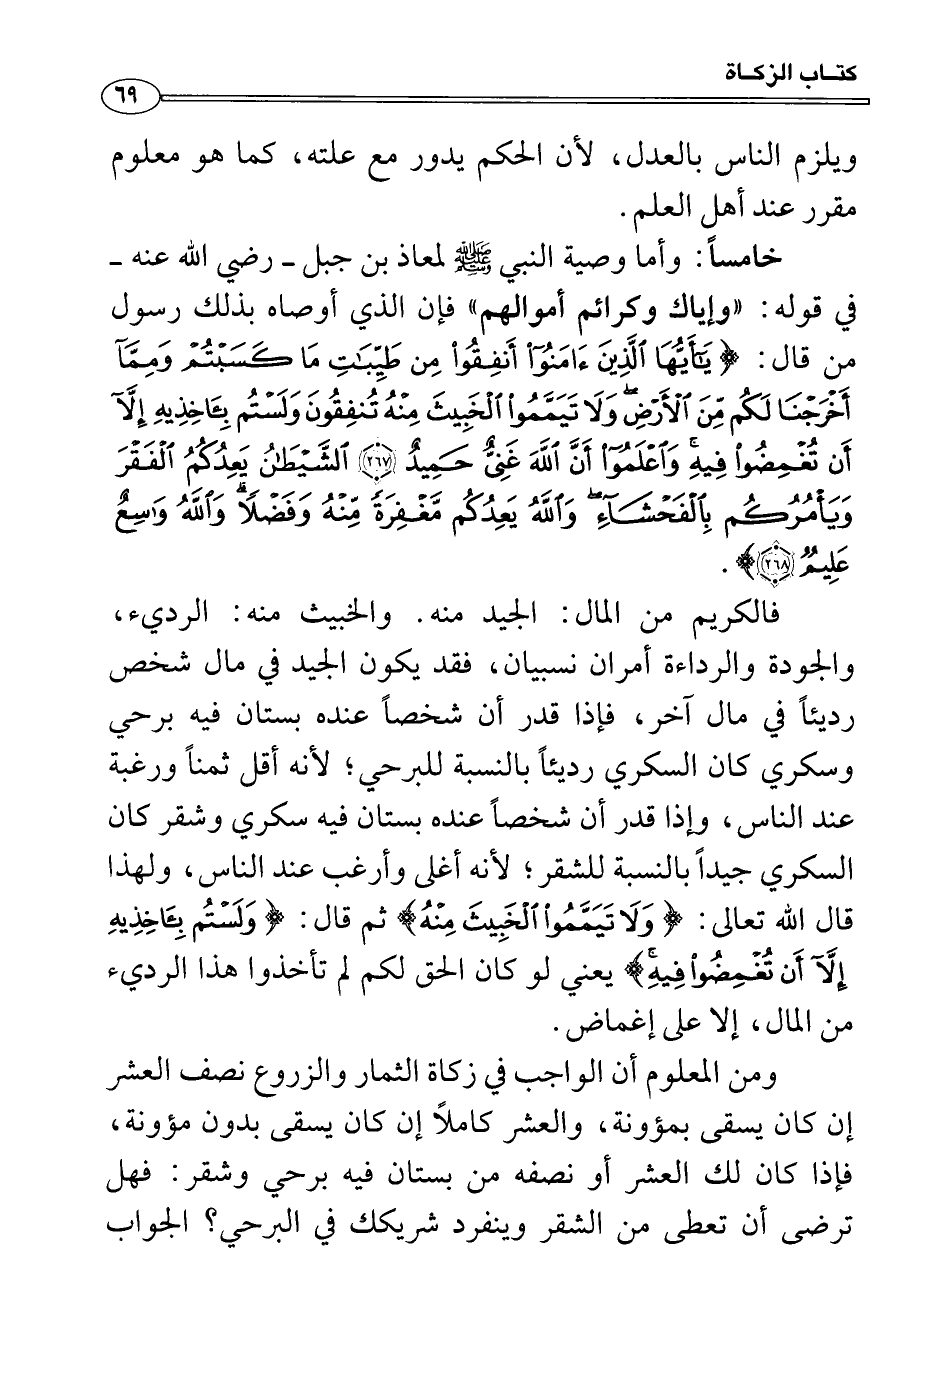 كتاب الزكاة
٦٩
ويلزم الناس بالعدل، لأن الحكم يدور مع علته، كما هو معلوم
مقرر عند أهل العلم.
خامساً: وأما وصية النبي ﷺ لمعاذ بن جبل ـ رضي الله عنه ـ
في قوله: «وإياك وكرائم أموالهم» فإن الذي أوصاه بذلك رسول
من قال: ﴿يَٰٓأَيُّهَا ٱلَّذِينَ ءَامَنُوٓا۟ أَنفِقُوا۟ مِن طَيِّبَٰتِ مَا كَسَبْتُمْ وَمِمَّآ
أَخْرَجْنَا لَكُم مِّنَ ٱلْأَرْضِ ۖ وَلَا تَيَمَّمُوا۟ ٱلْخَبِيثَ مِنْهُ تُنفِقُونَ وَلَسْتُم بِـَٔاخِذِيهِ إِلَّآ
أَن تُغْمِضُوا۟ فِيهِ ۚ وَٱعْلَمُوٓا۟ أَنَّ ٱللَّهَ غَنِىٌّ حَمِيدٌ ٢٦٧ ٱلشَّيْطَٰنُ يَعِدُكُمُ ٱلْفَقْرَ
وَيَأْمُرُكُم بِٱلْفَحْشَآءِ ۖ وَٱللَّهُ يَعِدُكُم مَّغْفِرَةً مِّنْهُ وَفَضْلًا ۗ وَٱللَّهُ وَٰسِعٌ
عَلِيمٌ ٢٦٨﴾.
فالكريم من المال: الجيد منه. والخبيث منه: الرديء،
والجودة والرداءة أمران نسبيان، فقد يكون الجيد في مال شخص
رديئاً في مال آخر، فإذا قدر أن شخصاً عنده بستان فيه برحي
وسكري كان السكري رديئاً بالنسبة للبرحي؛ لأنه أقل ثمناً ورغبة
عند الناس، وإذا قدر أن شخصاً عنده بستان فيه سكري وشقر كان
السكري جيداً بالنسبة للشقر؛ لأنه أغلى وأرغب عند الناس، ولهذا
قال الله تعالى: ﴿وَلَا تَيَمَّمُوا۟ ٱلْخَبِيثَ مِنْهُ﴾ ثم قال: ﴿وَلَسْتُم بِـَٔاخِذِيهِ
إِلَّآ أَن تُغْمِضُوا۟ فِيهِ ۚ﴾ يعني لو كان الحق لكم لم تأخذوا هذا الرديء
من المال، إلا على إغماض.
ومن المعلوم أن الواجب في زكاة الثمار والزروع نصف العشر
إن كان يسقى بمؤونة، والعشر كاملاً إن كان يسقى بدون مؤونة،
فإذا كان لك العشر أو نصفه من بستان فيه برحي وشقر: فهل
ترضى أن تعطى من الشقر وينفرد شريكك في البرحي؟ الجواب